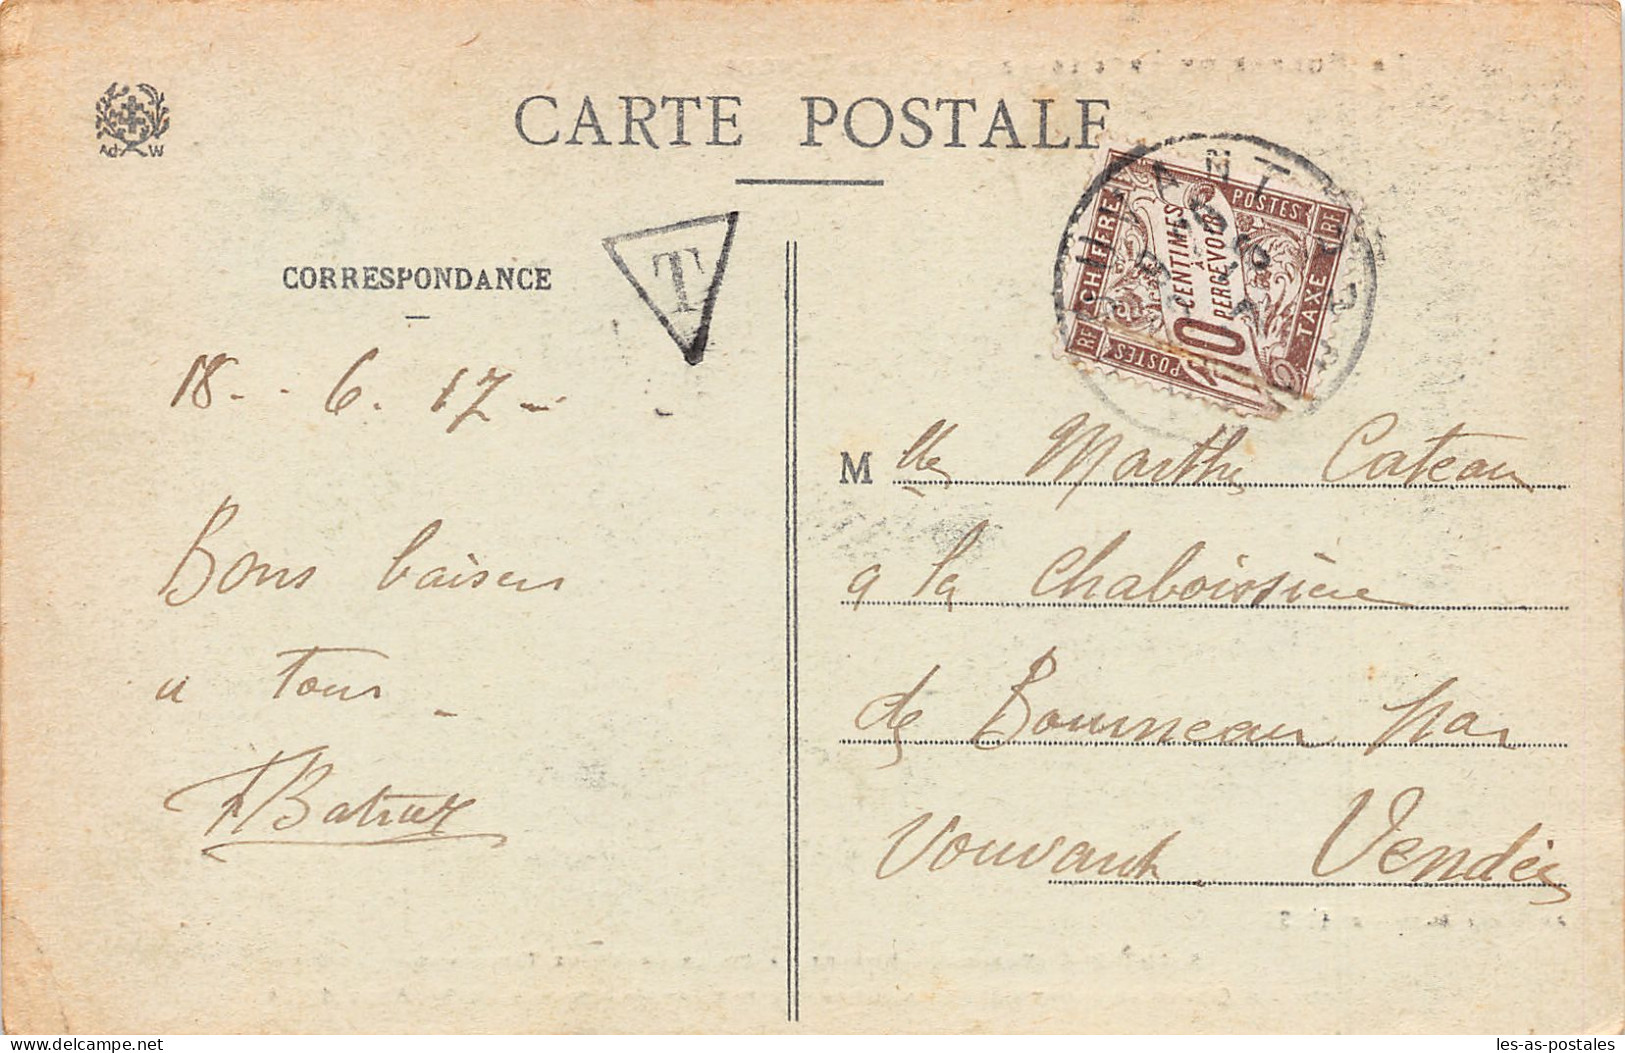 CARTE POSTALE
Ad W
CORRESPONDANCE
T
RF CHIFFRE
POSTES RF
10 CENTIMES
À
PERCEVOIR
TAXE
RF POSTES
18 - - 6. 17 -
Bons baisers
a tous -
M lle Marthe Cateau
a la Chaboissière
de Bourneau par
Vouvant Vendée
les-as-postales.com
les-as-postales